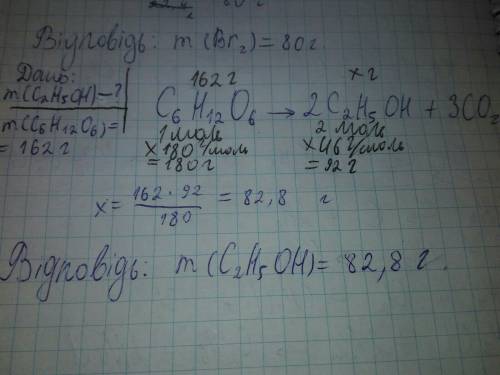 Відповідь: m(Br₂)=80г.
Дано:
m(C₂H₅OH)-?
m(C₆H₁₂O₆)=
=162г
162г xг
C₆H₁₂O₆ → 2C₂H₅OH + 3CO₂
1моль 2моль
×180г/моль ×46г/моль
=180г =92г
x= 162·92 / 180 = 82,8 г
Відповідь: m(C₂H₅OH)= 82,8 г.